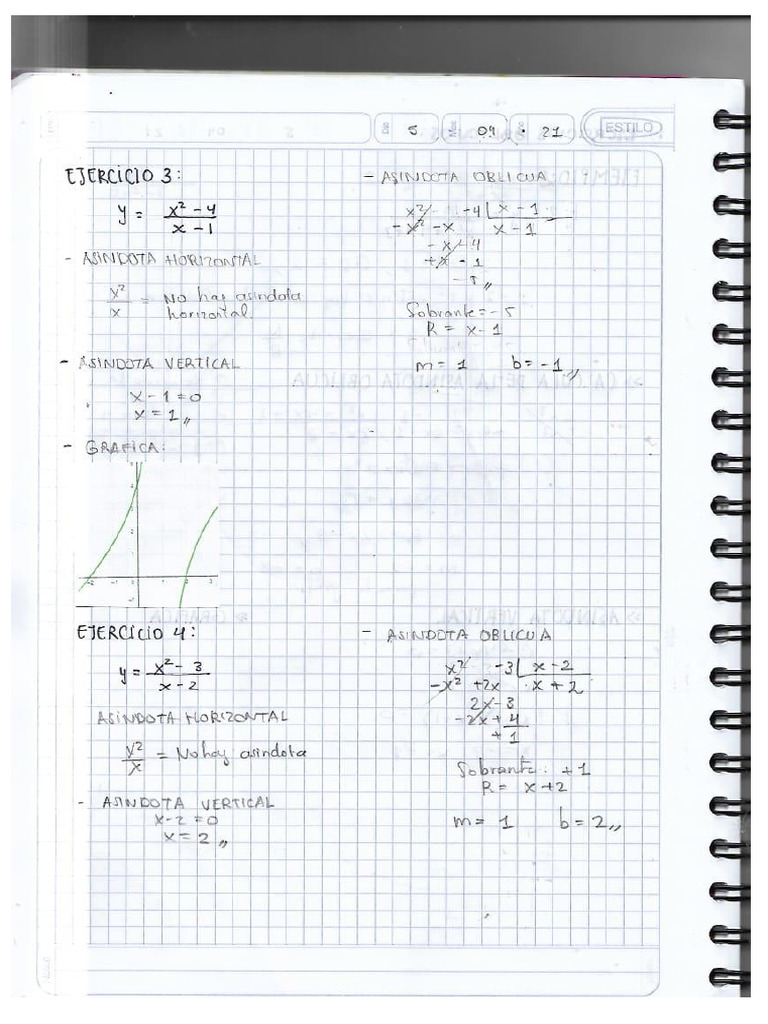 5 09 21 ESTILO
EJERCICIO 3:
y = x² - 4 / x - 1
- ASINDOTA HORIZONTAL
x² / x = No hay asindota
horizontal
- ASINDOTA VERTICAL
x - 1 = 0
x = 1 ,,
- GRAFICA:
- ASINDOTA OBLICUA
x² -4 | x - 1
- x² - x x - 1
- x - 4
+ x - 1
- 5 ,,
Sobrante = - 5
R = x - 1
m = 1 b = -1 ,,
EJERCICIO 4:
y = x² - 3 / x - 2
ASINDOTA HORIZONTAL
x² / x = No hay asindota
- ASINDOTA VERTICAL
x - 2 = 0
x = 2 ,,
- ASINDOTA OBLICUA
x² -3 | x - 2
- x² + 2x x + 2
2x - 3
- 2x + 4
+ 1
Sobrante: + 1
R = x + 2
m = 1 b = 2 ,,